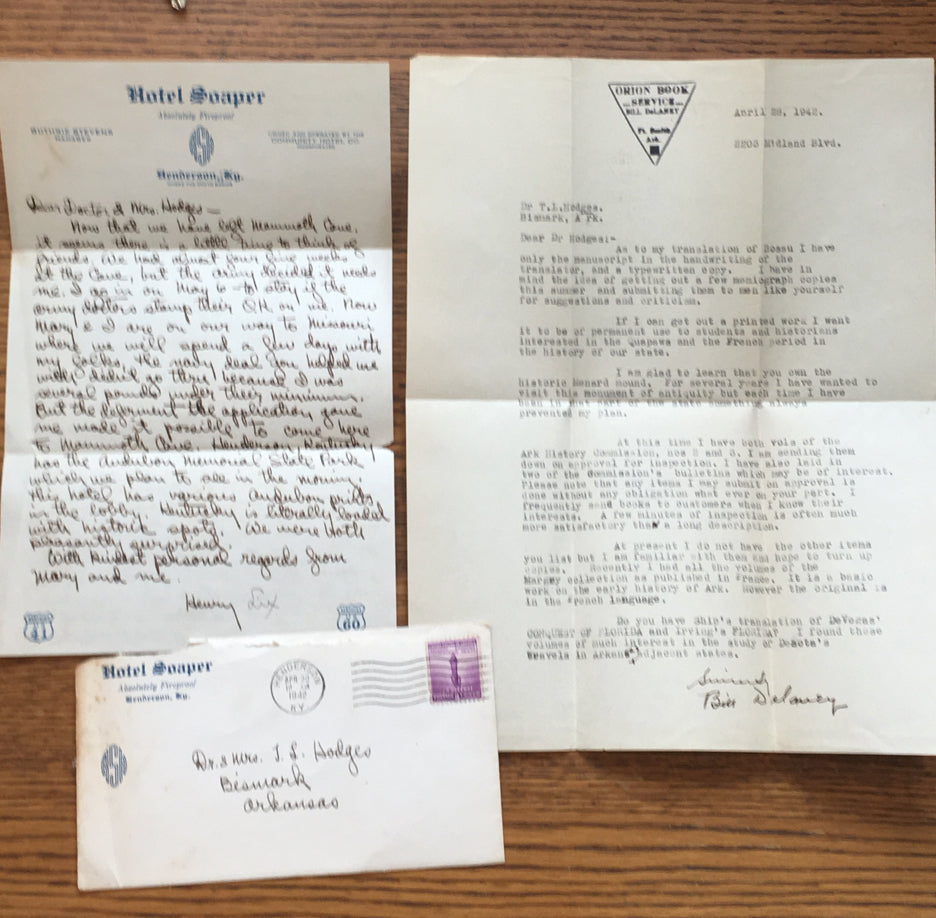 Hotel Soaper
Absolutely Fireproof
GUTHRIE STEVENS
MANAGER
OWNED AND OPERATED BY THE
COMMUNITY HOTEL CO.
INCORPORATED
HSH
Henderson, Ky.
Dear Doctor & Mrs. Hodges —
Now that we have left Mammoth Cave,
it seems there is a little time to think of
friends. We had about four five weeks
at the Cave, but the army decided it needs
me. I go in on May 6 to stay if the
army doctors stamp their OK on me. Now
Mary & I are on our way to Missouri
where we will spend a few days with
my folks. The navy deal you helped me
with didn't go thru because I was
several pounds under their minimum.
But the deferment the application gave
me made it possible to come here
to Mammoth Cave. Henderson, Kentucky
has the Audubon Memorial State Park
which we plan to see in the morning.
This hotel has various Audubon prints
in the lobby. Kentucky is literally loaded
with historic spots. We were both
pleasantly surprised.
With kindest personal regards from
Mary and me.
Henry Lix
41
60
ORION BOOK
SERVICE
BILL DeLANEY
Ft. Smith,
Ark.
April 28, 1942.
2203 Midland Blvd.
Dr T.L.Hodges.
Bismark, A rk.
Dear Dr Hodges:-
As to my translation of Bossu I have
only the manuscript in the handwriting of the
translator, and a typewritten copy. I have in
mind the idea of getting out a few memiograph copies
this summer and submitting them to men like yourself
for suggestions and criticism.
If I can get out a printed work I want
it to be of permanent use to students and historians
interested in the Quapaws and the French period in
the history of our state.
I am glad to learn that you own the
historic Menard mound. For several years I have wanted to
visit this monument of antiquity but each time I have
been in that part of the state something always
prevented my plan.
At this time I have both vols of the
Ark History Commission, nos 2 and 3. I am sending them
down on approval for inspection. I have also laid in
two of the Commission's bulletins which may be of interest.
Please note that any items I may submit on approval is
done without any obligation what ever on your part. I
frequently send books to customers when I know their
interests. A few minutes of inspection is often much
more satisfactory than a long description.
At present I do not have the other items
you list but I am familiar with them and hope to turn up
copies. Recently I had all the volumes of the
Margry collection as published in France. It is a basic
work on the early history of Ark. However the original is
in the French language.
Do you have Ship's translation of DeVegas'
CONQUEST OF FLORIDA and Irving's FLORIDA? I found these
volumes of much interest in the study of Desota's
travels in Arkans adjacent states.
Sincerely
Bill Delaney
Hotel Soaper
Absolutely Fireproof
Henderson, Ky.
HSH
HENDERSON
APR 30
1942
KY.
Dr. & Mrs. T. L. Hodges
Bismark
Arkansas